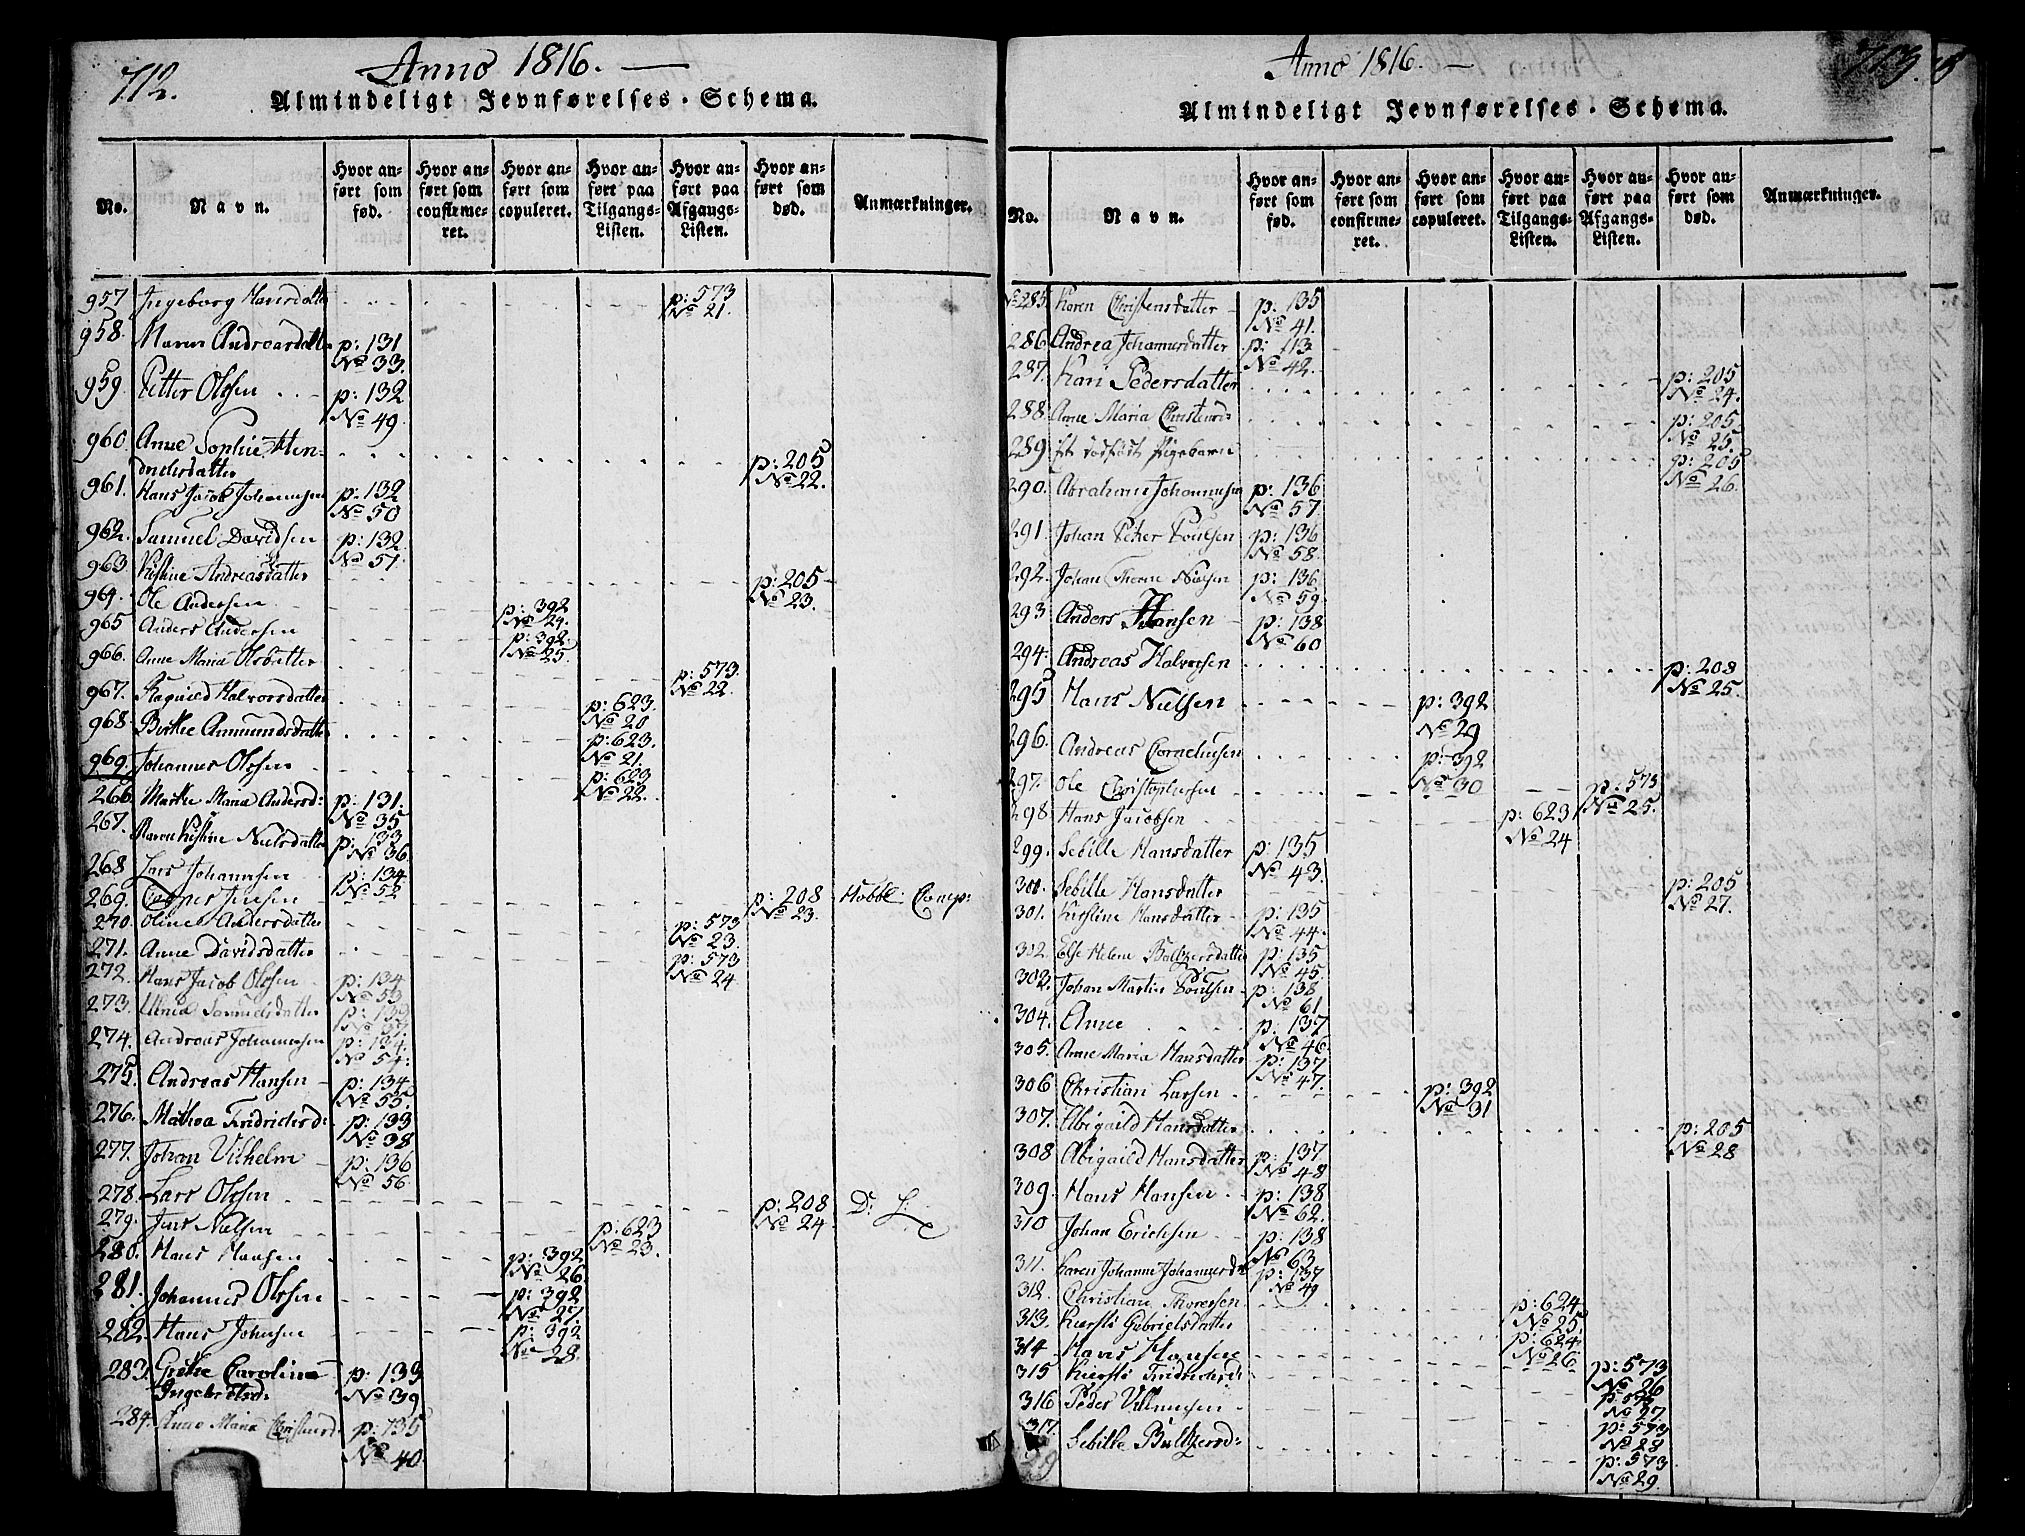 712.
Anno 1816.
Almindeligt Jevnførelses-Schema.
No.
Navn.
Hvor anført som fød.
Hvor anført som confirmeret.
Hvor anført som copuleret.
Hvor anført paa Tilgangs-Listen.
Hvor anført paa Afgangs-Listen.
Hvor anført som død.
Anmærkninger.
957 Ingeborg Hansdatter p: 573 No 21.
958. Maren Andreasdatter p: 131 No 33.
959. Petter Olssen p: 132 No 49.
960. Anne Sophie Hen-
dricksdatter p: 205 No 22.
961. Hans Jacob Johannesen p: 132 No 50
962. Samuel Davidsen p: 132 No 51
963 Kistine Andreasdatter p: 205 No 23.
964. Ole Andersen p: 392 No 24.
965 Anders Andersen p: 392. No 25.
966. Anne Maria Olsdatter p: 573. No 22.
967. Ragnild Halvorsdatter p: 623. No 20
968. Birthe Anmundsdatter p: 623. No 21.
969. Johannes Olssen p: 623 No 22.
266. Marthe Maria Andersd: p: 131. No 35
267. Maren Kistine Nielsdatter p: 133 No 36.
268 Lars Johannesen p: 134 No 52
269. Casper Jensen p: 208 No 23. Hobbl: Comp:
270. Oline Andersdatter p: 573 No 23.
271. Anne Davidsdatter p: 573 No 24
272. Hans Jacob Olssen p: 134 No 53
273. Samuelsdatter p: 133 No 37.
274. Andreas Johannesen p: 134. No 54.
275. Andreas Hansen p: 134 No 55.
276. Mathea Fridrichsd: p: 133 No 38
277. Johan Vilhelm p: 136 No 56.
278. Lars Olssen p: 208 No 24 D: L:
279. Jens Nielsen p: 623 No 23.
280. Hans Hansen p: 392 No 26
281. Johannes Olssen p: 392 No 27.
282. Hans Johnsen p: 392 No 28.
283. Grethe Caroline
Ingebretsd: p: 133 No 39
284. Anne Maria Christensd: p: 135 No 40
713.
Anno 1816.
Almindeligt Jevnførelses-Schema.
No.
Navn.
Hvor anført som fød.
Hvor anført som confirmeret.
Hvor anført som copuleret.
Hvor anført paa Tilgangs-Listen.
Hvor anført paa Afgangs-Listen.
Hvor anført som død.
Anmærkninger.
No 285. Karen Christensdatter p: 135 No 41.
286. Andrea Johannesdatter p: 113 No 42.
287. Kari Pedersdatter p: 205 No 24.
288. Anne Maria Christensd: p: 205 No 25.
289 et dødfødt Pigebarn p: 205 No 26.
290. Abraham Johannesen p: 136 No 57.
291. Johan Peter Poulsen p: 136 No 58.
292. Johan Nielsen p: 136 No 59.
293 Anders Hansen p: 138 No 60
294. Andreas Halvorsen p: 208 No 25.
295 Hans Nielsen p: 392 No 29
296. Andreas Corneliusen p: 392 No 30
297. Ole Christophersen p: 573 No 25.
298 Hans Jacobsen p: 623 No 24
299. Sebille Hansdatter p: 135 No 43.
300. Sebille Hansdatter p: 205 No 27.
301. Kirstine Hansdatter p: 135 No 44.
302. Else Helene Baltzersdatter p: 135 No 45.
303. Johan Martin Poulsen p: 138 No 61
304. Anne p: 137 No 46.
305. Anne Maria Hansdatter p: 137 No 47.
306 Christian Larsen p: 392 No 31
307. Abigaild Hansdatter p: 205 No 28
308 Abigaild Hansdatter p: 137 No 48
309. Hans Hansen p: 138 No 62.
310 Johan Erichsen p: 138 No 63
311. Karen Johanne Johannesd p: 137 No 49
312. Christian Thoresen p: 624 No 25.
313. Kiersti Gabrielsdatter p: 624 No 26
314 Hans Hansen p: 573 No 26
315 Kiersti Fridrichsd: p: 573 No 27
316 Peder Villumsen p: 573 No 28
317. Sebille Baltzersd: p: 573 No 29.